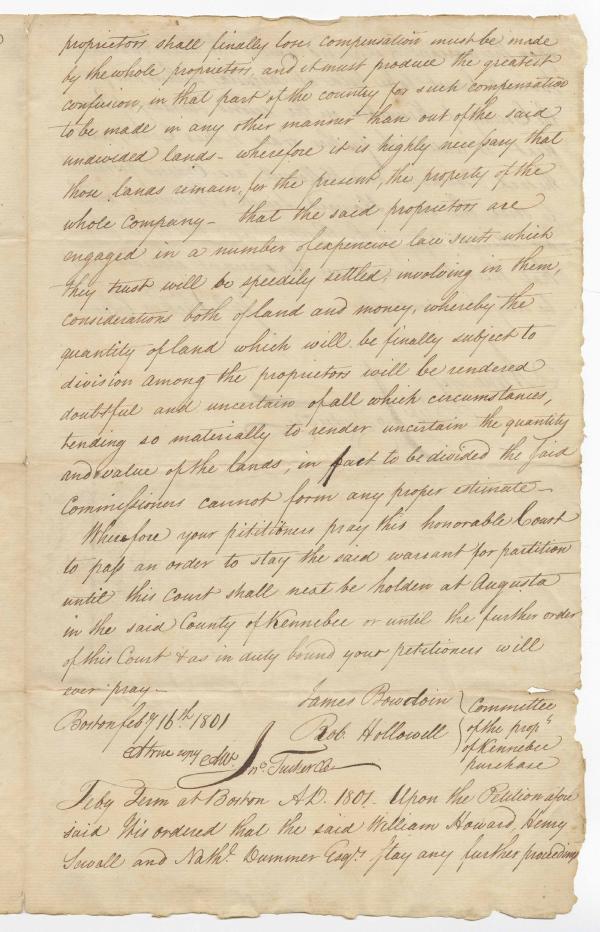 proprietors shall finally lose compensation must be made
by the whole proprietors, and it must produce the greatest
confusion, in that part of the country for such compensation
to be made in any other manner than out of the said
undivided lands - wherefore it is highly necessary that
those lands remain, for the present, the property of the
whole company - that the said proprietors are
engaged in a number of expencive law suits which
they trust will be speedily settled, involving in them,
considerations both of land and money, whereby the
quantity of land which will be finally subject to
division among the proprietors will be rendered
doubtful and uncertain of all which circumstances,
tending so materially to render uncertain the quantity
and value of the lands, in fact to be divided the said
Commissioners cannot form any proper estimate -
Wherefore your pititioners pray this honorable Court
to pass an order to stay the said warrant for partition
until this Court shall next be holden at Augusta
in the said County of Kennebec or until the further order
of this Court & as in duty bound your petitioners will
ever pray -
James Bowdoin
Rob Hollowell
Committee
of the prop.rs
of Kennebec
purchase
Boston feb.y 16th 1801
A true copy Att.
Jno. Tucker
Feby Term at Boston A.D. 1801. Upon the Petition afore
said It is ordered that the said William Howard, Henry
Sewall and Nath.l Dummer Esq.rs stay any further proceedings